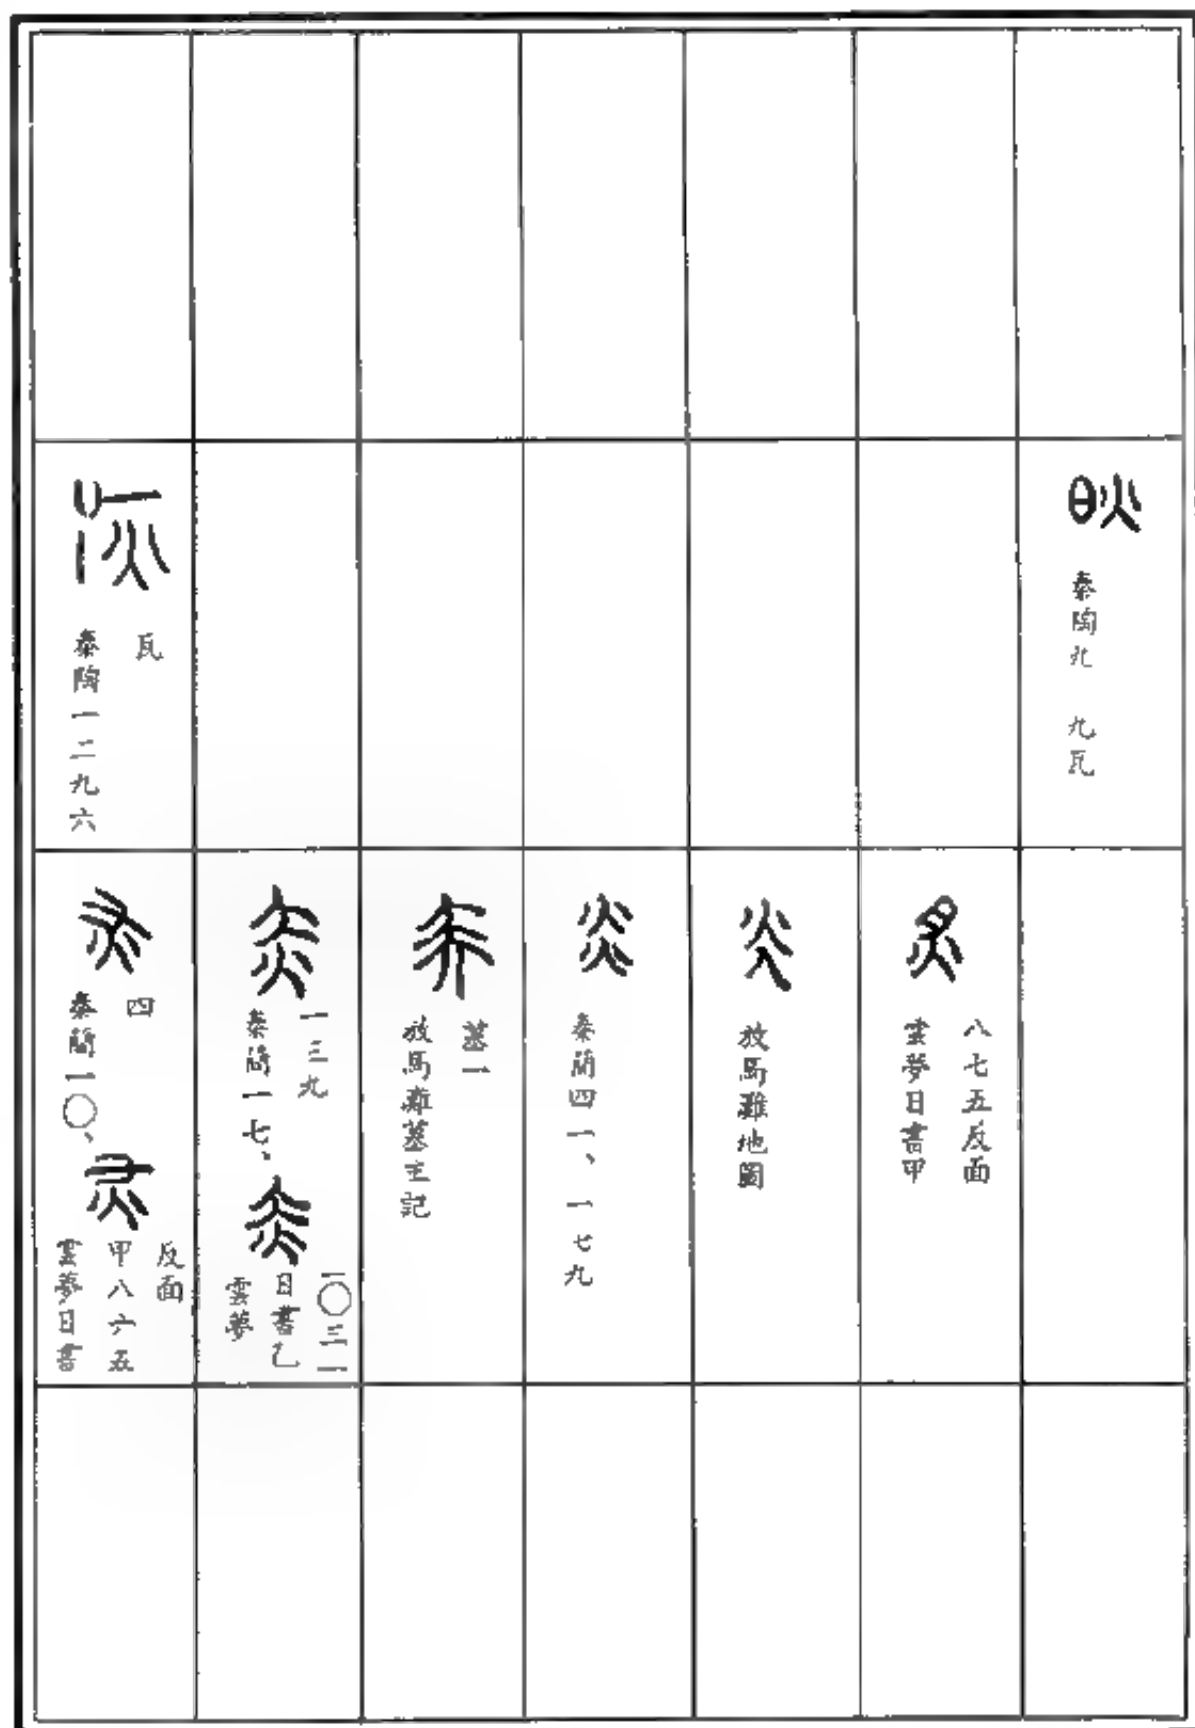 秦陶九 九瓦
雲夢日書甲
八七五反面
放馬灘地圖
秦簡四一、一七九
放馬灘墓主記
墓一
秦簡一七、
一三九
雲夢
日書乙
一〇三一
秦陶一二九六
瓦
秦簡一〇、
四
雲夢日書
甲八六五
反面